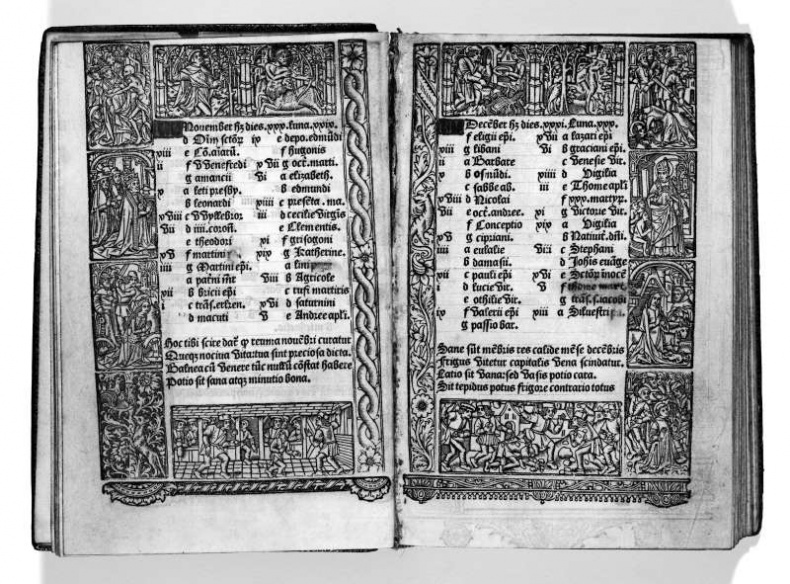 November hʒ dies .xxx. Luna .xxix.
d Oīm sctōꝝ ix e depo. edmūdi
xiii e Cō. aīarū. f hugonis
ii f Wenefredi xvii g oct. marti.
g amancii vi a elizabeth.
x a leti presby. b edmundi
b leonardi xiiii c presēta. ma.
xviii c willebror iii d cecilie virgīs
vii d iiii. coroñ. e Clementis.
e theodori xi f grisogoni
xv f martini xix g Katherine.
iiii g Martini epī. a lini
a patni b Agricole
xii b bricii epī c rufi martiris
i c trās. xvi d saturnini
d macuti v e Andree apl'i
Hoc tibi scire dat̄ ꝙ reuma nouēbri curatur
Queqʒ nociua vita tua sint preciosa dicta.
Balnea cū venere tūc nullū cōstat habere
Potio sit sana atqʒ minutio bona.
Decēber hʒ dies .xxxi. Luna .xxx.
f eligii epī. xvii a lazari epī
xiii g libani vi b graciani epī.
ii a Barbare c venesie vir.
x b osmūdi. xiiii d Vigilia
c sabbe ab. iii e Thome apl'i
xviii d Nicolai f xxx. martyꝝ.
vii e oct. andree. xi g victorie vir.
f Conceptio xix a Vigilia
xv g cipriani. b Natiuit. dn̄i.
iiii a eulalie viii c Stephani
b damasii. d Johīs euāge
xii c pauli epī xvi e Sctōꝝ īnocē
i d lucie vir. v f thome mart.
e othilie vir. g trās. s. iacobi
ix f valerii epī xiii a Siluestri
g passio bar.
Sane sūt mēbris res calide mēse decēbris
Frigus vitetur capitalis vena scindatur.
Latio sit vana: sed vasis potio cara.
Sit tepidus potus frigore contrario totus